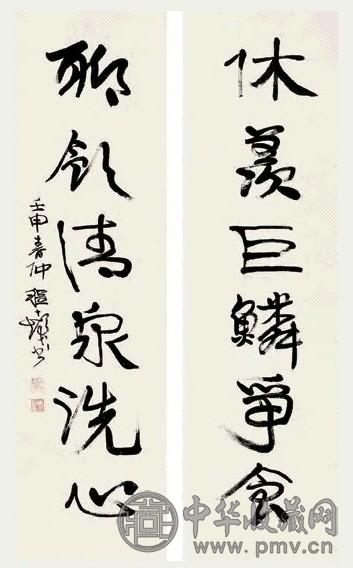 休羡巨鱗爭食
聊飲清泉洗心
壬申春仲程十髮书
中华收藏网
www.pmv.cn